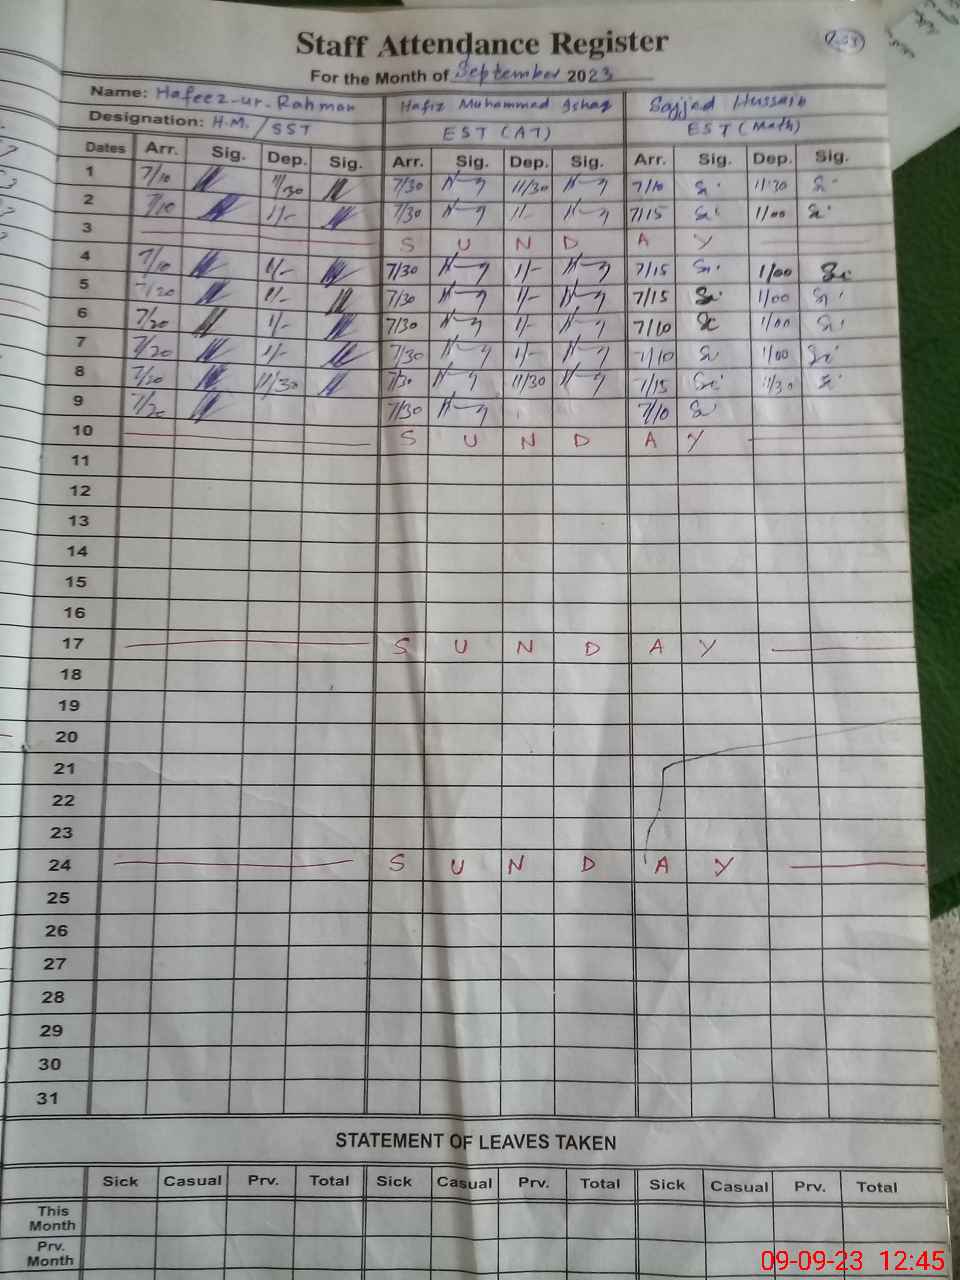 Staff Attendance Register
For the Month of September 2023
Name: Hafeez-ur-Rahman Hafiz Muhammad Ishaq Sajjad Hussain
Designation: H.M./SST EST (AT) EST (Math)
Dates Arr. Sig. Dep. Sig. Arr. Sig. Dep. Sig. Arr. Sig. Dep. Sig.
1 7/10 11/30 7/30 11/30 7/10 11:30
2 7/10 1/- 7/30 1/- 7/15 1/00
3 S U N D A Y
4 7/10 1/- 7/30 1/- 7/15 1/00
5 7/20 1/- 7/30 1/- 7/15 1/00
6 7/20 1/- 7/30 1/- 7/10 1/00
7 7/20 1/- 7/30 1/- 7/10 1/00
8 7/20 11/30 7/30 11/30 7/15 11/30
9 7/20 7/30 7/10
10 S U N D A Y
11
12
13
14
15
16
17 S U N D A Y
18
19
20
21
22
23
24 S U N D A Y
25
26
27
28
29
30
31
STATEMENT OF LEAVES TAKEN
Sick Casual Prv. Total Sick Casual Prv. Total Sick Casual Prv. Total
This
Month
Prv.
Month
09-09-23 12:45